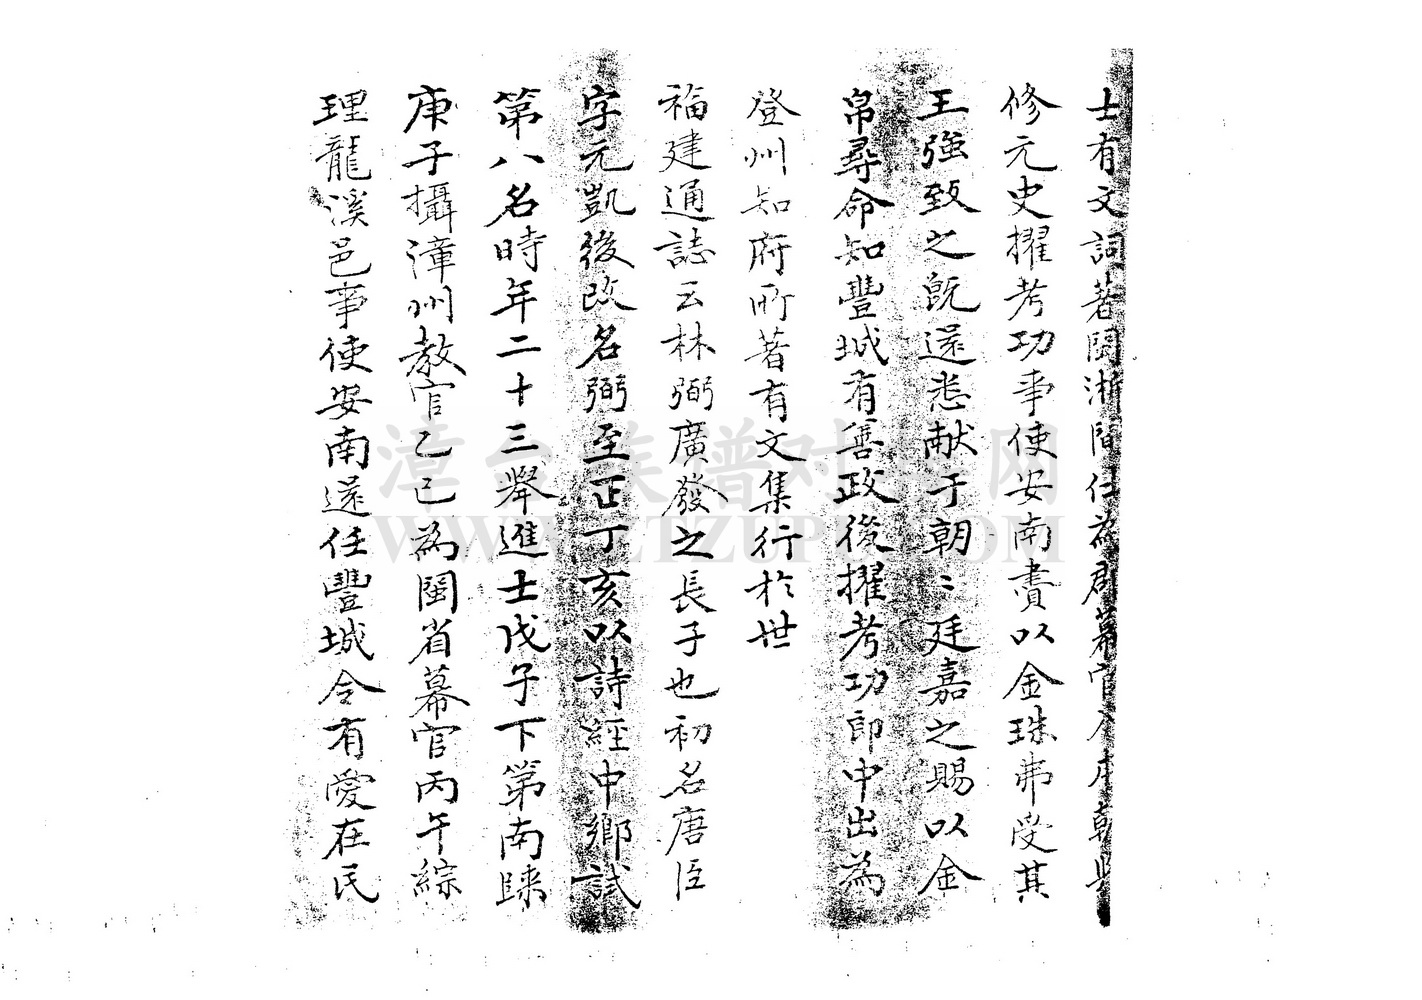 士有文詞著閩浙間任為郡幕官入本朝與
修元史擢考功事使安南賚以金珠弗受其
王強致之既還悉献于朝〻廷嘉之賜以金
帛尋命知豐城有善政後擢考功郎中出為
登州知府所著有文集行於世
福建通誌云林弼廣發之長子也初名唐臣
字元凱後改名弼至正丁亥以詩經中鄉試
第八名時年二十三舉進士戊子下第南歸
庚子攝漳州教官乙巳為閩省幕官丙午綜
理龍溪邑事使安南還任豐城令有愛在民
漳台族谱对接网
WWW.ZTZUPU.COM